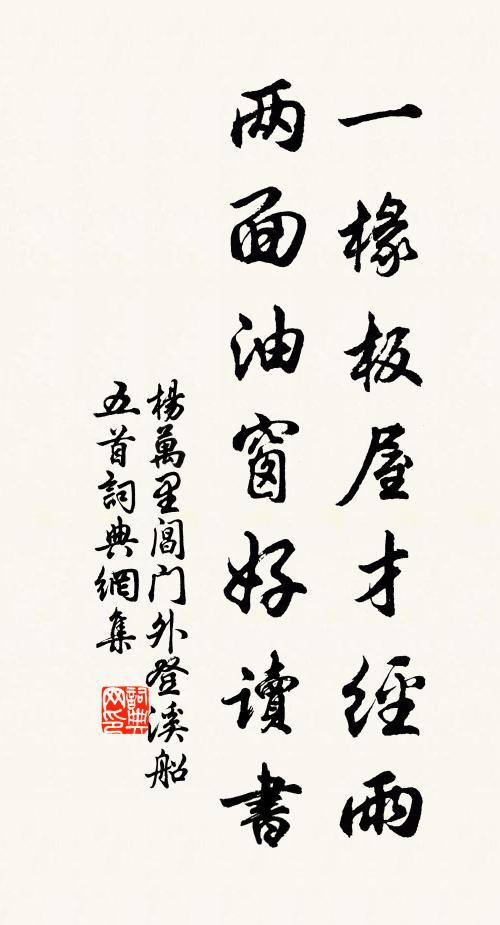 一椽板屋才經雨
两面油窗好讀書
楊萬里閶门外登溪船
五首詞典網集
詞典
网印